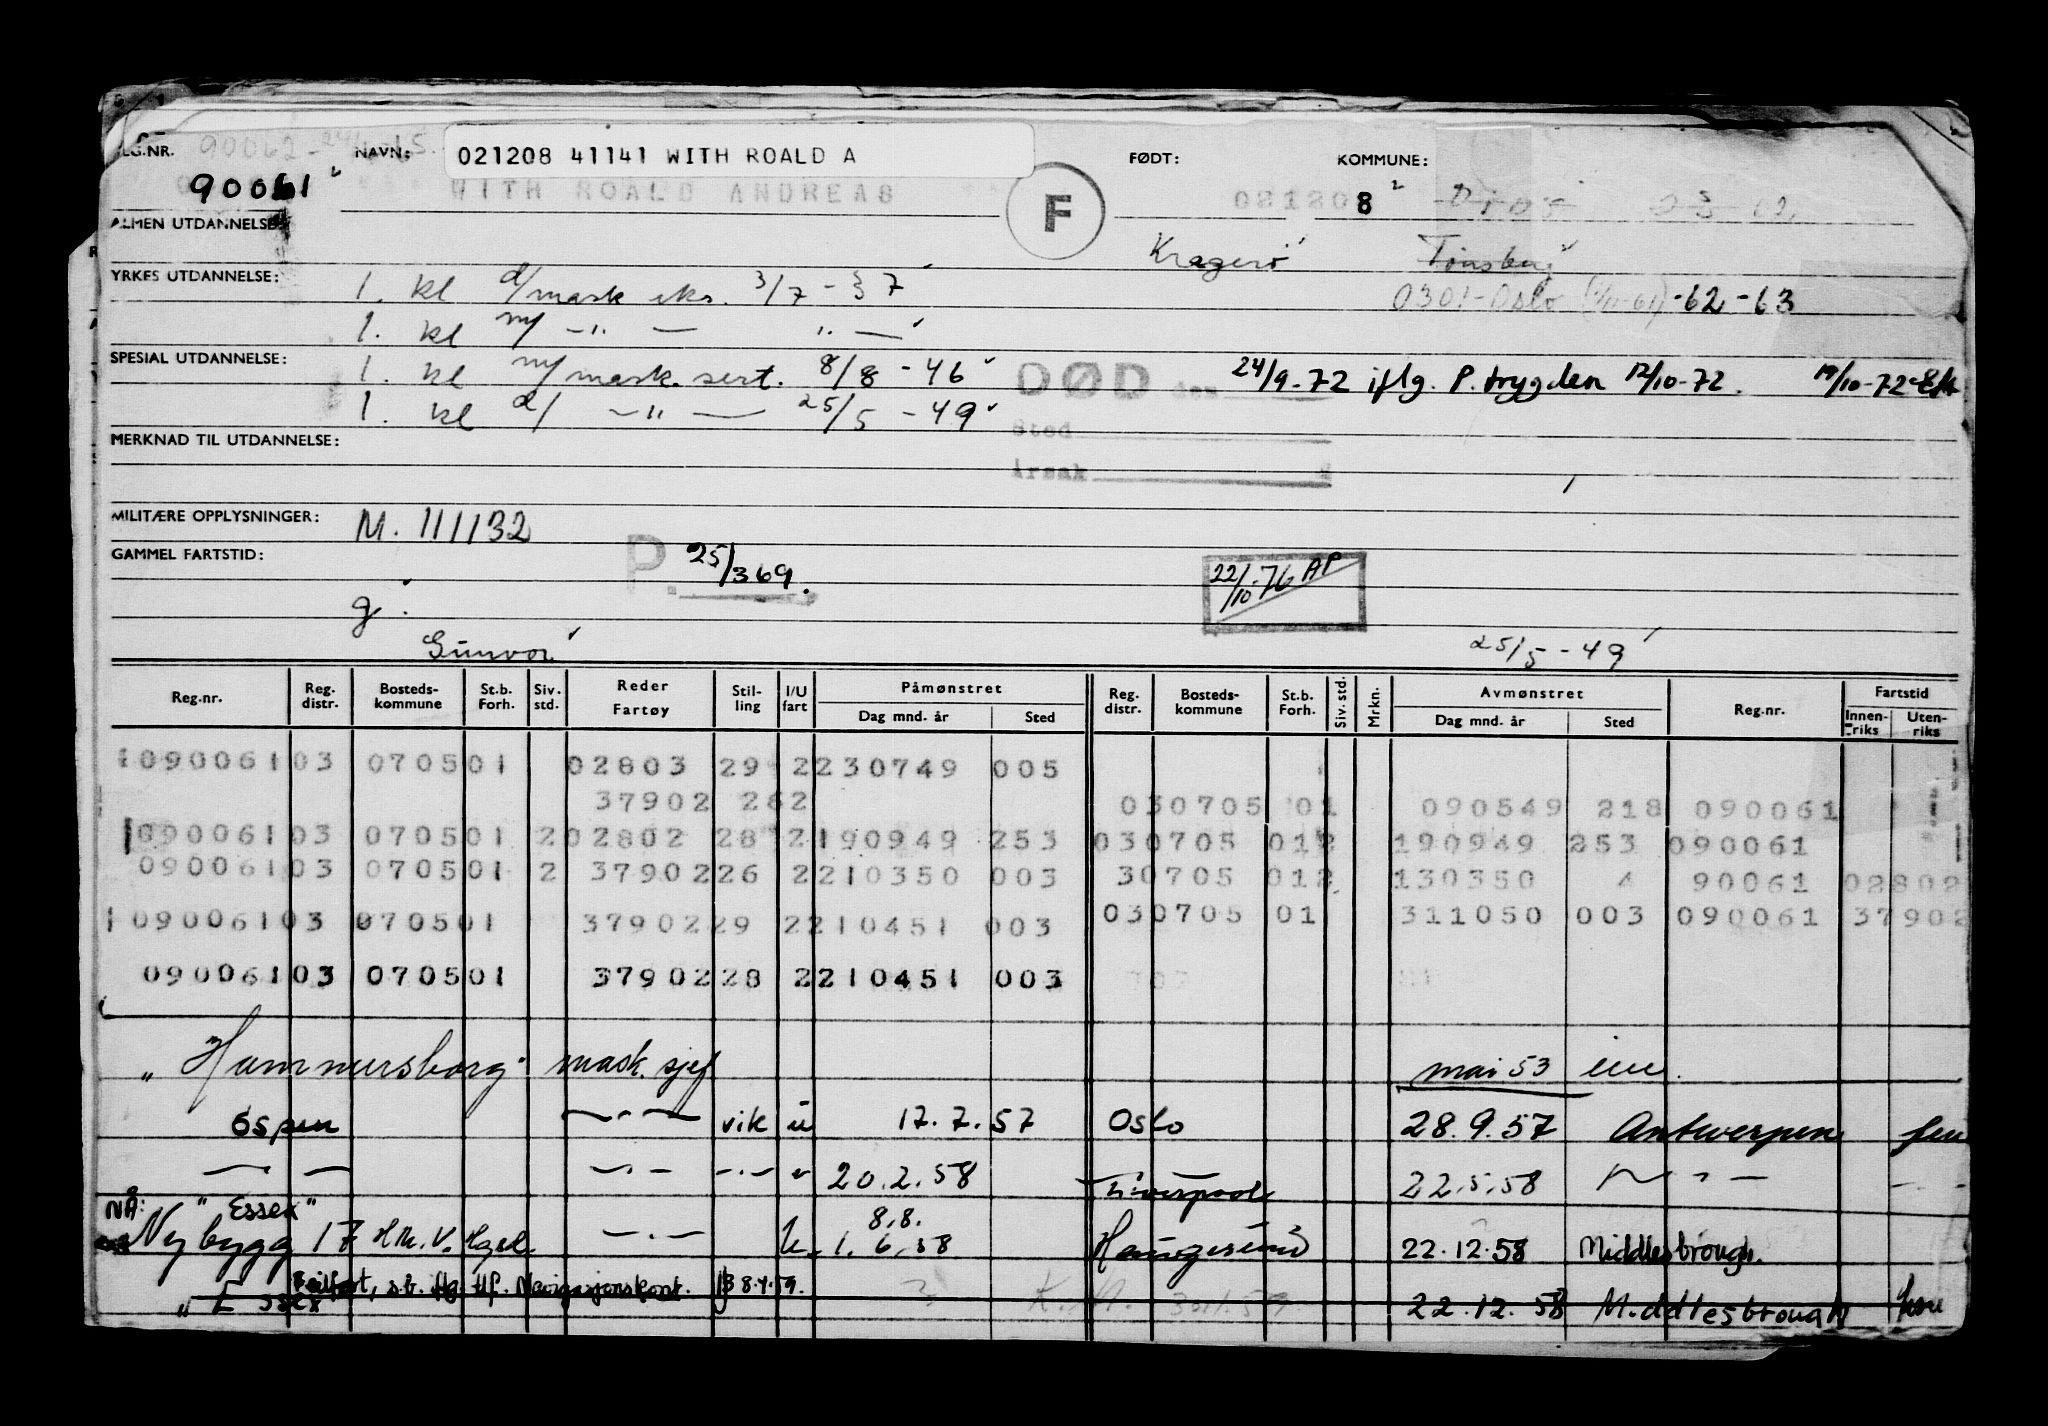 REG.NR. 90062 NAVN: 021208 41141 WITH ROALD A FØDT: KOMMUNE:
90061 WITH ROALD ANDREAS F 021208
ALMEN UTDANNELSE: Kragerø Tønsberg
YRKES UTDANNELSE: 1. kl d/mask eks. 3/7 - 37 0301-Oslo -62 -63
1. kl m/ -"- "-
SPESIAL UTDANNELSE: 1. kl m/mask. sert. 8/8 - 46 DØD den 24/9-72 iflg. P.trygden 12/10-72.
1. kl d/ -"- 25/5 - 49 Sted
MERKNAD TIL UTDANNELSE: Årsak
MILITÆRE OPPLYSNINGER: M. 111132
GAMMEL FARTSTID: P. 25/3 69. 22/10-76 AP
g.
Gunvor 25/5 - 49
Reg.nr. Reg. distr. Bosteds-kommune St.b. Forh. Siv. std. Reder Fartøy Stil-ling I/U fart Påmønstret Dag mnd. år Sted Reg. distr. Bosteds-kommune St.b. Forh. Siv. std. Mrkn. Avmønstret Dag mnd. år Sted Reg.nr. Fartstid Innen-riks Uten-riks
1 090061 03 0705 01 02803 29 2 230749 005
37902 28 2 03 0705 01 090549 218 090061
090061 03 0705 01 2 02802 28 2 190949 253 03 0705 01 2 190949 253 090061
090061 03 0705 01 2 37902 26 2 210350 003 3 0705 01 2 130350 4 90061 02802
1 090061 03 0705 01 37902 29 2 210451 003 03 0705 01 311050 003 090061 37902
090061 03 0705 01 37902 28 2 210451 003
"Hammersborg" mask. sjef mai 53
Ospen -"- vik u 17.7.57 Oslo 28.9.57 Antwerpen
-"- -"- -"- " 20.2.58 Liverpool 22.5.58 -"-
NÅ: "Essex"
Nybygg 17 -"- u. 8.8. 1.6.58 Haugesund 22.12.58 Middlesbrough.
"Essex 22.12.58 Middlesbrough